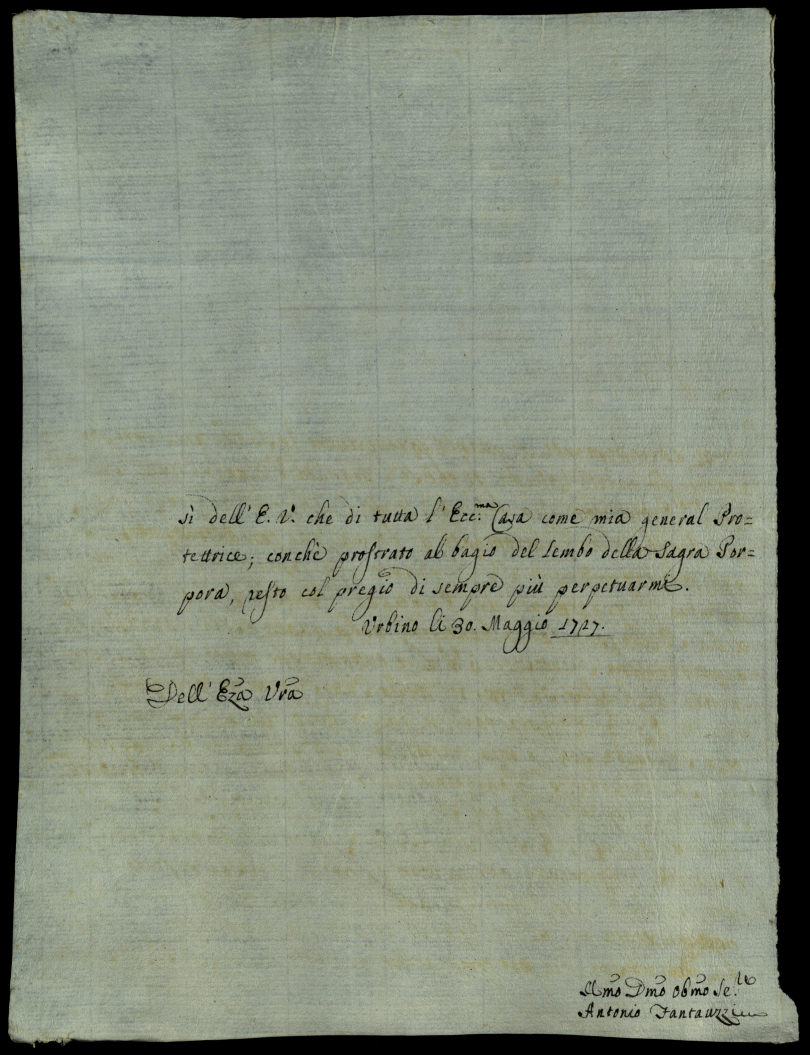 sì dell' E. V. che di tutta l' Ecc.ma Casa come mia general Pro=
tettrice; conchè prostrato al bagio del lembo della Sagra Por=
pora, resto col pregio di sempre più perpetuarmi.
Urbino li 30. Maggio 1727.
Dell' Eza Vra
Umo Dmo Obmo Se.re
Antonio Fantauzzi